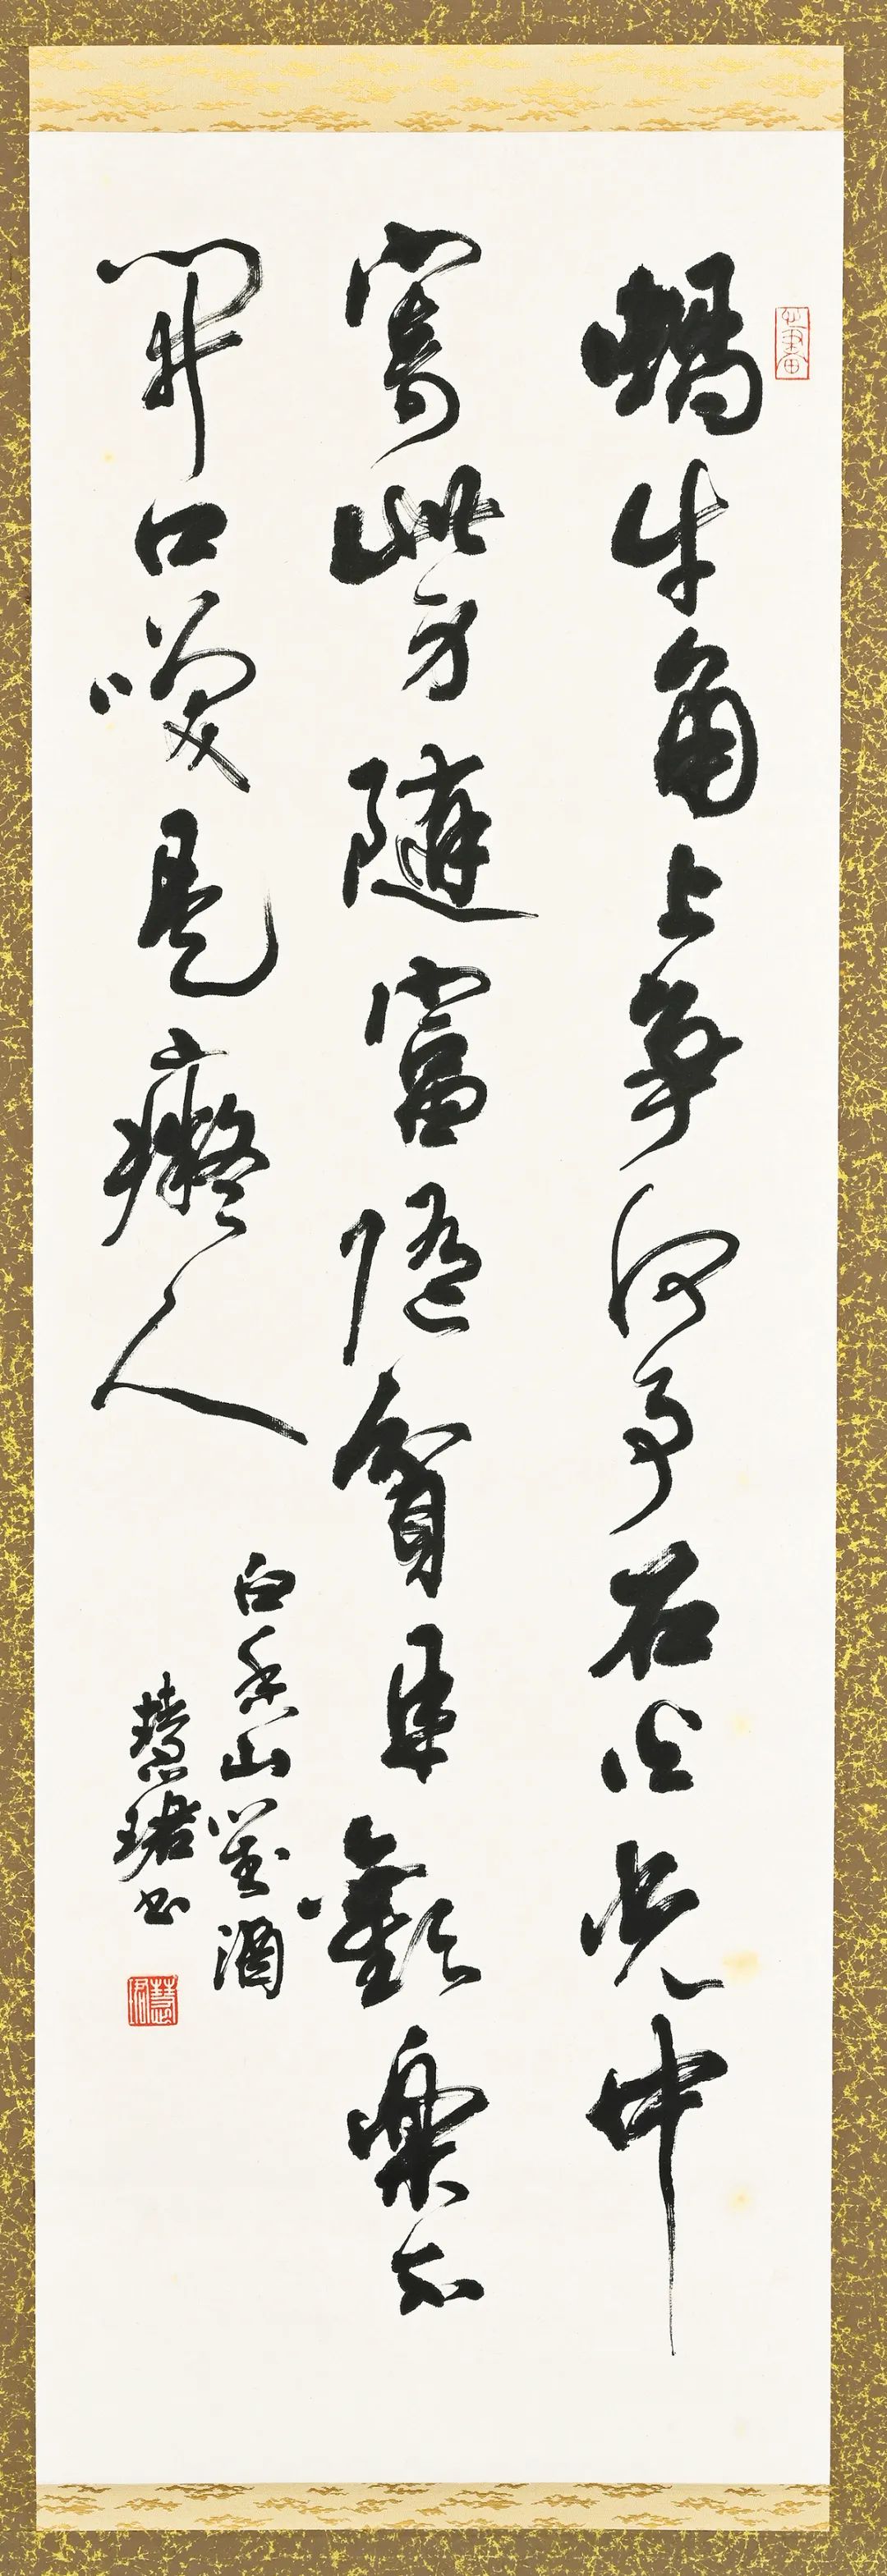 蝸牛角上爭何事石火光中
寄此身隨富隨貧且歡樂不
開口咲是癡人
白香山對酒
慧珺书
慧珺